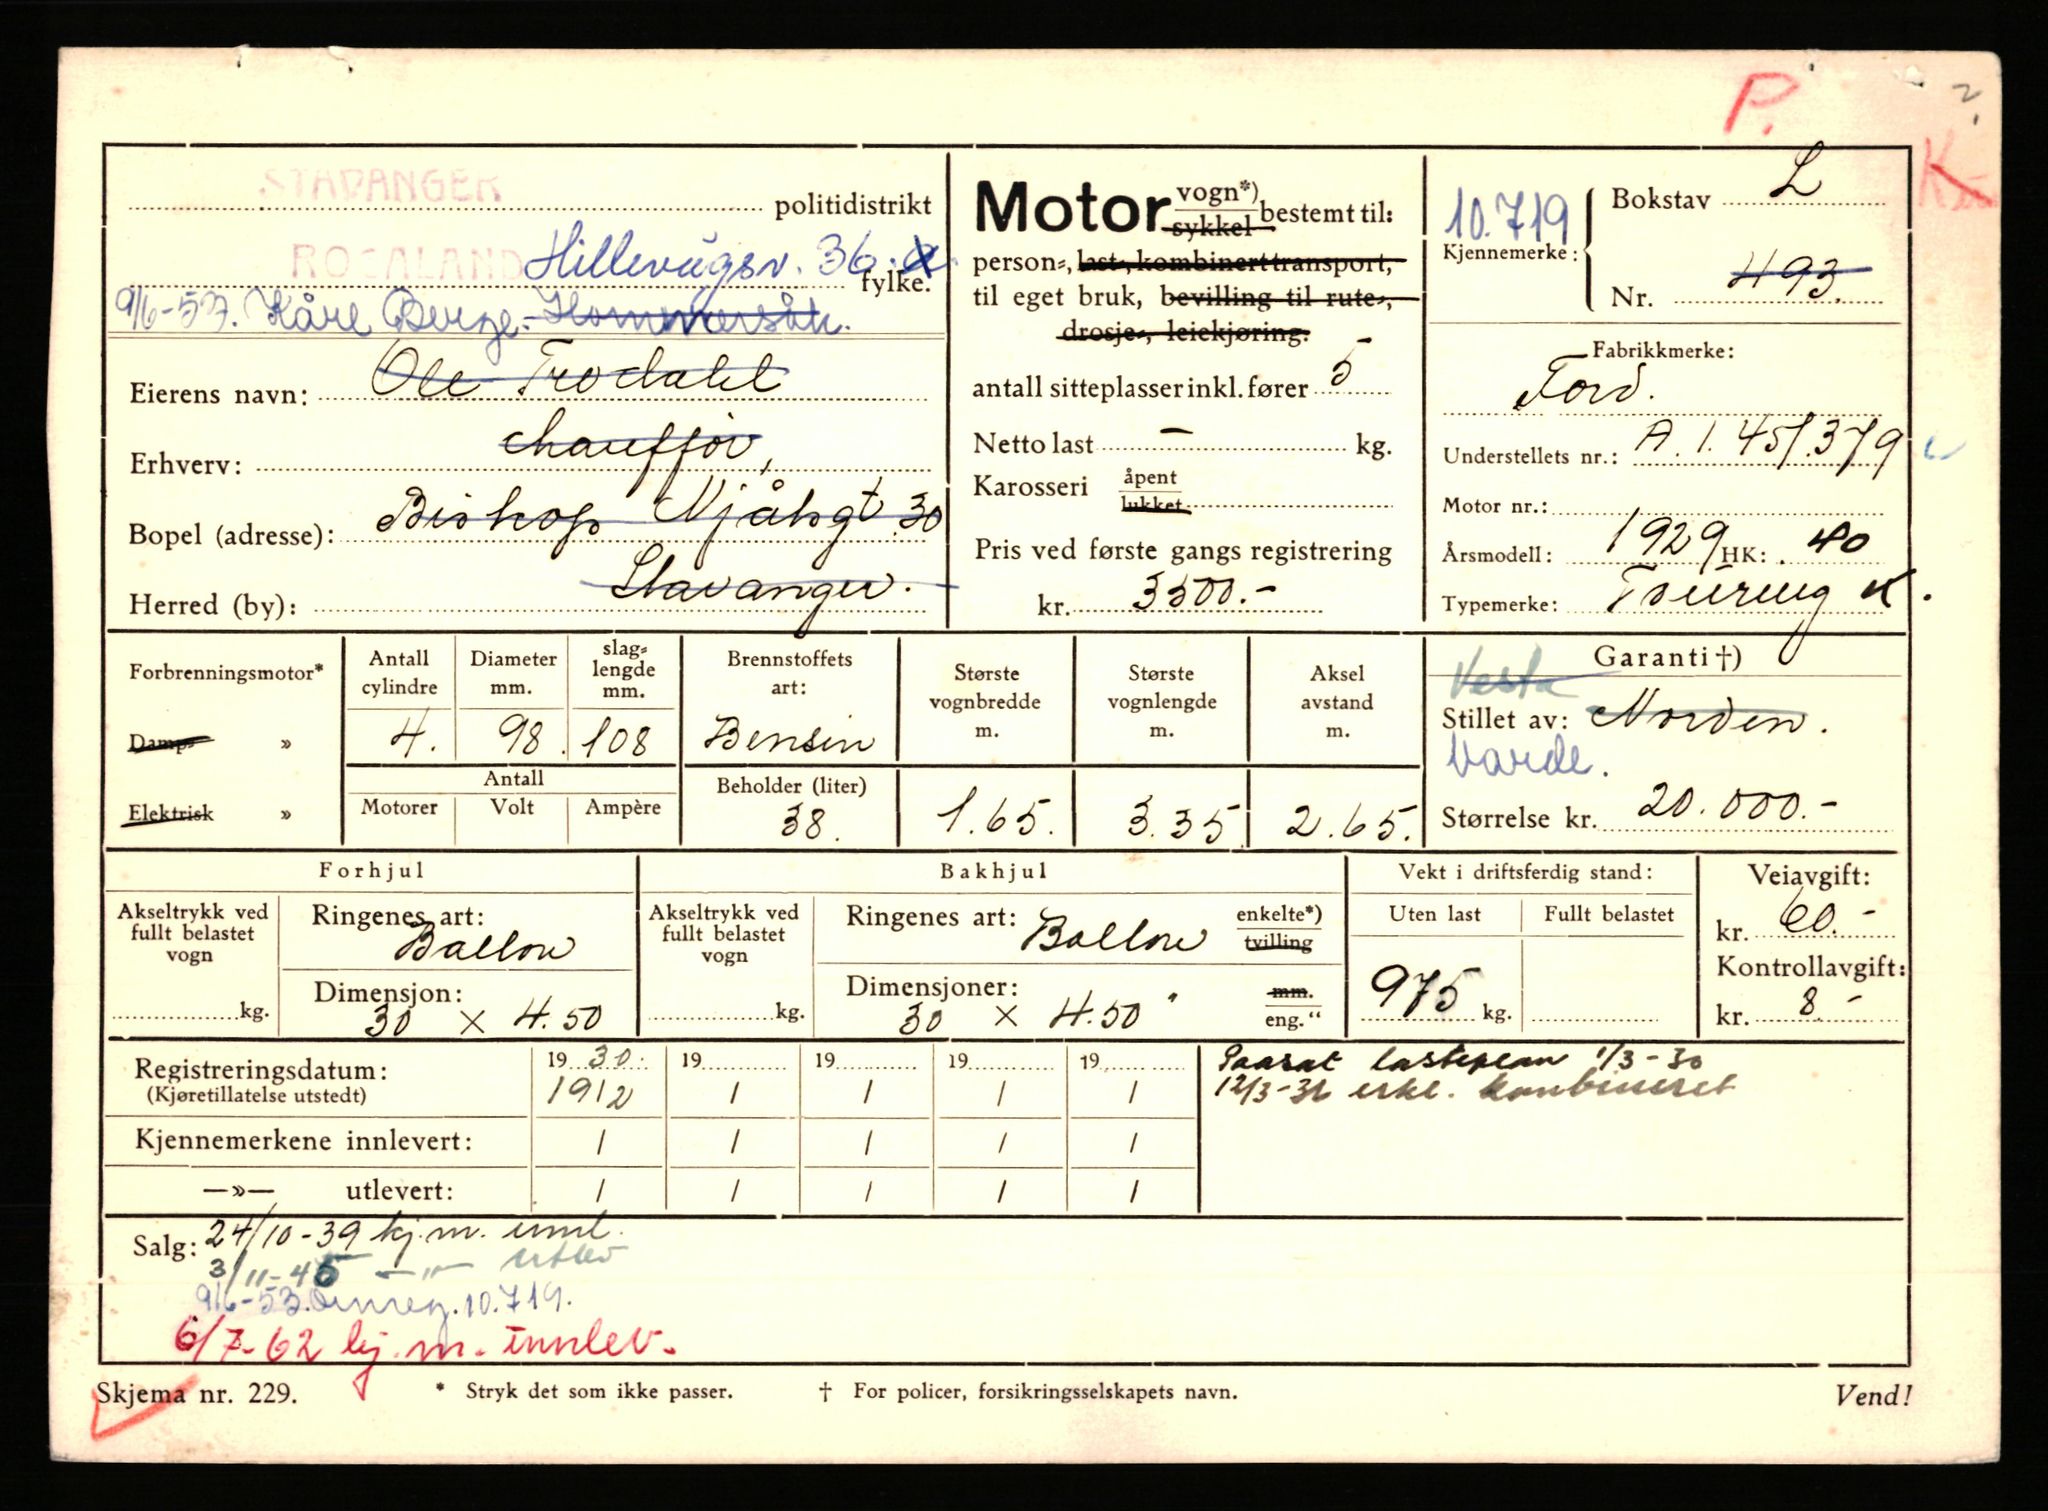 P.
2.
K
STAVANGER politidistrikt
ROGALAND fylke.
Hillevågsv. 36.
9/6-53. Kåre Berge. Hommersåk.
Eierens navn: Ole Trodahl
Erhverv: chauffør,
Bopel (adresse): Biskop Njålsgt. 30
Herred (by): Stavanger.
Motor vogn*) sykkel bestemt til:
person-, last-, kombinert transport,
til eget bruk, bevilling til rute-,
drosje-, leiekjøring.
antall sitteplasser inkl. fører 5
Netto last – kg.
Karosseri åpent lukket
Pris ved første gangs registrering
kr. 3300.-
10.719
Kjennemerke: Bokstav L
Nr. 493.
Fabrikkmerke:
Ford.
Understellets nr.: A.1.451.379
Motor nr.:
Årsmodell: 1929 HK: 40
Typemerke: Touring
Forbrenningsmotor*
Damp- »
Elektrisk »
Antall cylindre
4.
Diameter mm.
98.
slag-lengde mm.
108
Antall
Motorer Volt Ampère
Brennstoffets art:
Bensin
Beholder (liter)
38.
Største vognbredde m.
1.65.
Største vognlengde m.
3.35
Aksel avstand m.
2.65.
Garanti †)
Vesta
Stillet av: Norden.
Varde.
Størrelse kr. 20.000.-
Forhjul
Akseltrykk ved fullt belastet vogn
kg.
Ringenes art:
Ballon
Dimensjon:
30 x 4.50
Bakhjul
Akseltrykk ved fullt belastet vogn
kg.
Ringenes art: enkelte*) tvilling
Ballon
Dimensjoner: mm. eng."
30 x 4.50 "
Vekt i driftsferdig stand:
Uten last Fullt belastet
975 kg.
Veiavgift:
kr. 60.-
Kontrollavgift:
kr. 8.-
Registreringsdatum: 1930. 19 19 19 19
(Kjøretillatelse utstedt) 19/2 / / / /
Kjennemerkene innlevert: / / / / /
—»— utlevert: / / / / /
Paasat lasteplan 1/3-30
12/3-32 erkl. kombineret
Salg: 24/10-39 kj.m. innl.
3/11-45 —"— utlev
9/6-53. Omreg. 10.719.
6/7-62 kj.m. innlev.
Skjema nr. 229.
* Stryk det som ikke passer.
† For policer, forsikringsselskapets navn.
Vend!